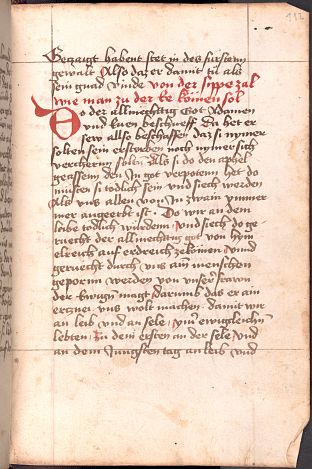 Gezaigt habent stet in des fursten
gewalt Also daz er damit tu als
sein gnad vinde von der sippe zal
wie man zu der Ee komen sol
Do der allmechttig Got Adamen
vnd Euen beschueff Do het er
sew allso beschaffen daz si nymer
solten sein erstorben noch nymer sich
verchern solten Als si do den aephel
geassenn den In got verpotenn het do
musten si todlich sein vnd siech werden
Als vns allen von In zwain ymmer
mer angeerbt ist Do wir an dem
leibe todlich wurdenn vnd siech do ge
ruecht der allmechttig got von hym
elreich auf erdreich zekomen vnnd
geruecht durch vns ain menschen
gepornn werden von vnser frawn
der Ewign magt darumb das er ain
ertznei vns wolt machen damit wir
an leib vnd an sele ewigleichn
lebten Zu dem ersten an der sele vnd
an dem Jungsten tag an leib vnd